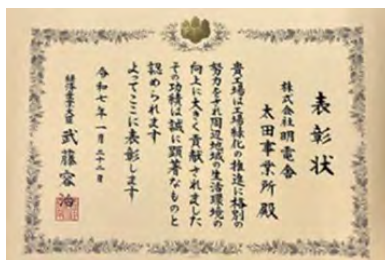 表彰状
株式会社明電舎
太田事業所殿
貴工場は工場緑化の推進に格別の
努力をされ周辺地域の生活環境の
向上に大きく貢献されました
その功績は誠に顕著なものと
認められます
よってここに表彰します
令和七年一月二十二日
経済産業大臣 武藤容治